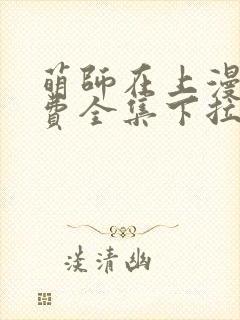 萌師在上漫
費全集下拉
淡清幽